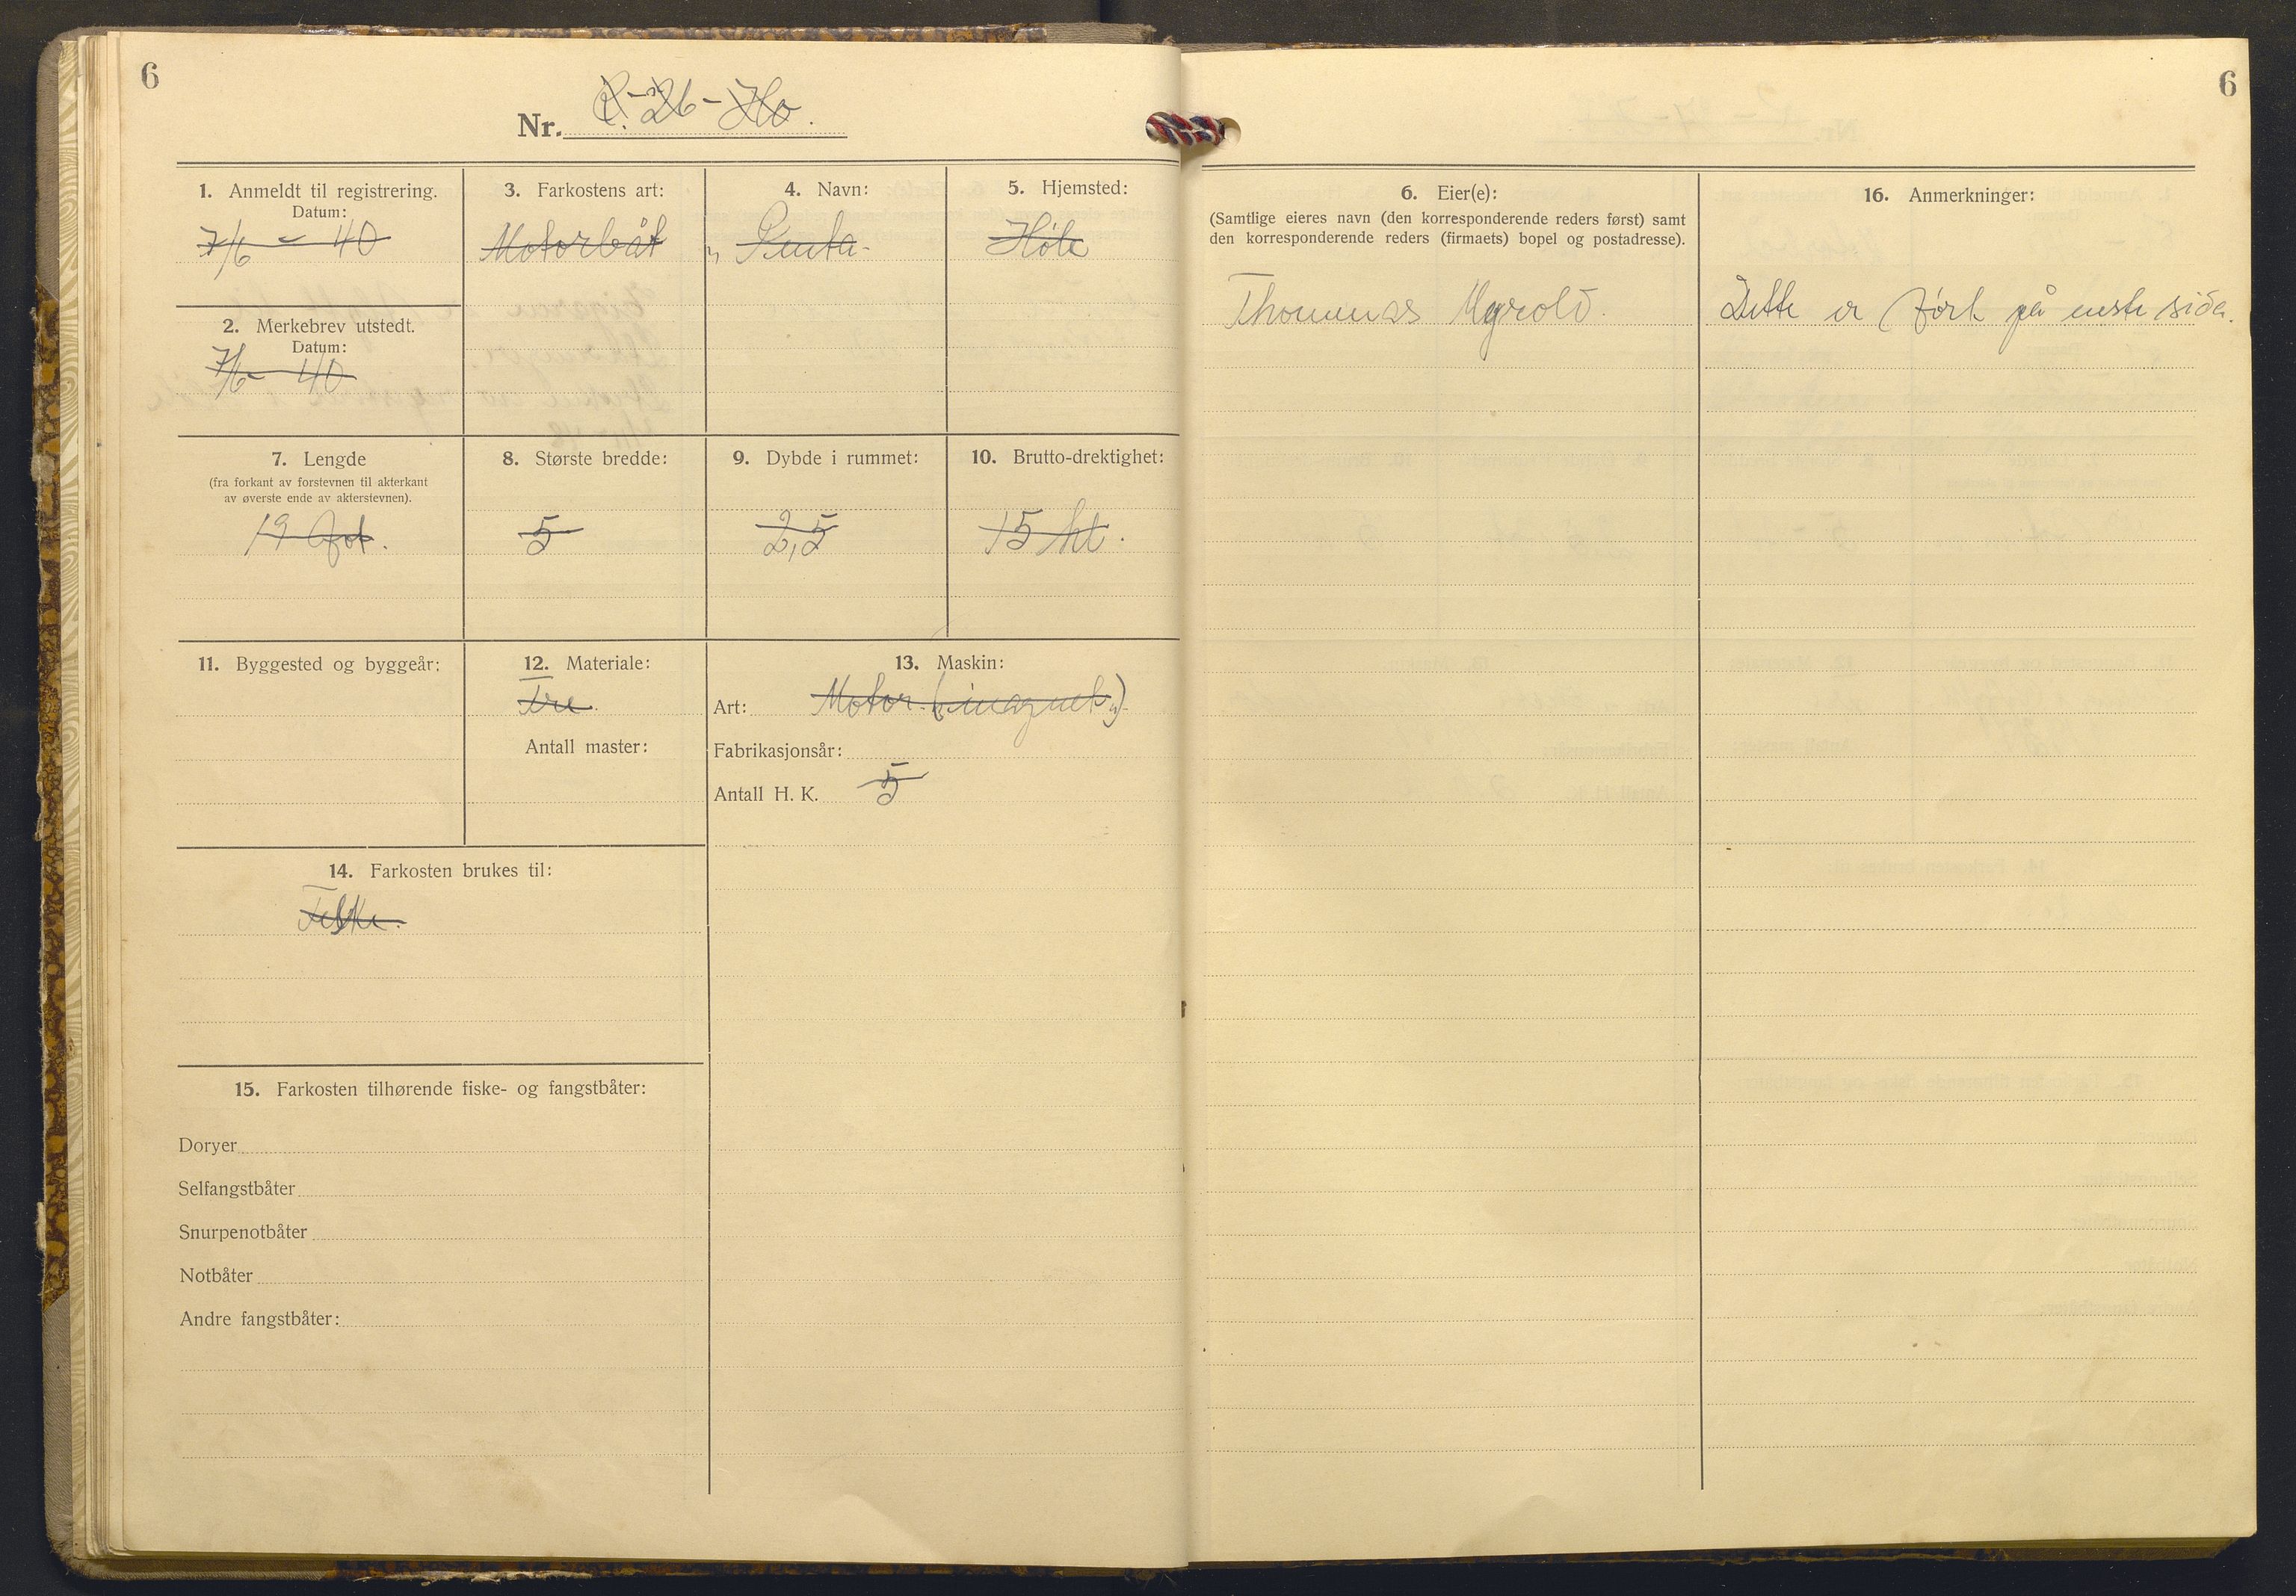 6
6
Nr. R-26-Ho.
1. Anmeldt til registrering.
Datum:
7/6 - 40
2. Merkebrev utstedt.
Datum:
7/6- 40
3. Farkostens art:
Motorbåt
4. Navn:
„ Penta-
5. Hjemsted:
Høle
6. Eier(e):
(Samtlige eieres navn (den korresponderende reders først) samt
den korresponderende reders (firmaets) bopel og postadresse).
Thommas Myrold.
16. Anmerkninger:
Dette er ført på neste sida.
7. Lengde
(fra forkant av forstevnen til akterkant
av øverste ende av akterstevnen).
19 fot.
8. Største bredde:
5
9. Dybde i rummet:
2,5
10. Brutto-drektighet:
15 hl.
11. Byggested og byggeår:
12. Materiale:
Tre
Antall master:
13. Maskin:
Art: Motor (magnet)
Fabrikasjonsår:
Antall H. K. 5
14. Farkosten brukes til:
Fiske.
15. Farkosten tilhørende fiske- og fangstbåter:
Doryer
Selfangstbåter
Snurpenotbåter
Notbåter
Andre fangstbåter: